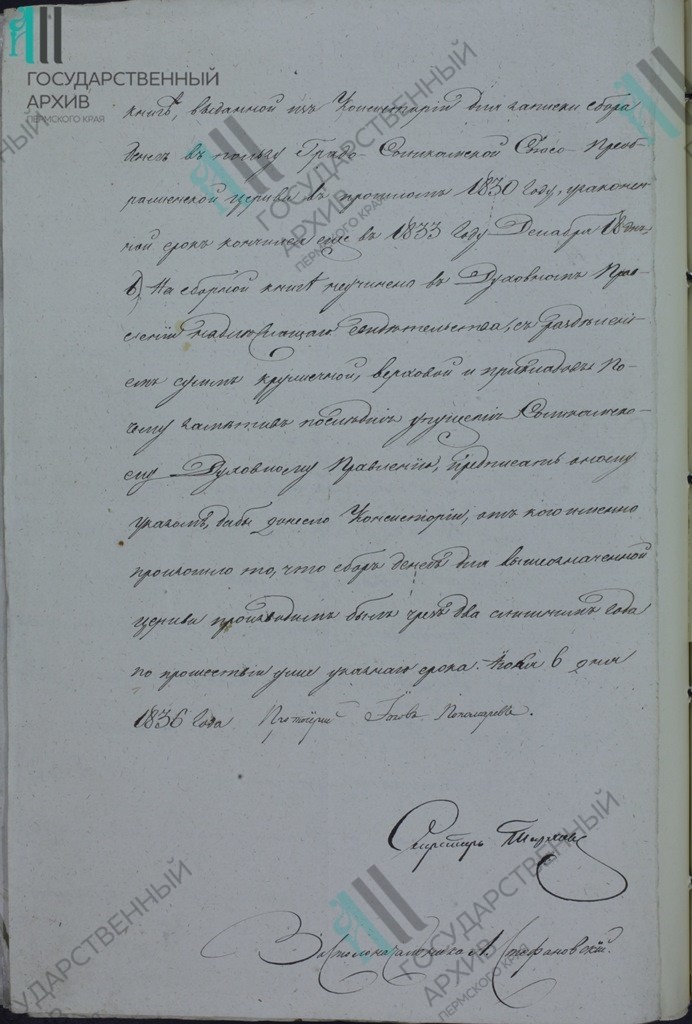 ГОСУДАРСТВЕННЫЙ
АРХИВ
ПЕРМСКОГО КРАЯ
книгѣ, выданной изъ Консисторіи для записки сбора
денегъ въ пользу Градо-Соликамской Спасо-Преоб-
раженской церкви въ прошломъ 1830 году, узаконен-
ной срокъ кончился еще въ 1833 году Декабря 18 дня,
б) На сборной книгѣ неучинено въ Духовномъ Прав-
леніи надлежащаго свидѣтельства, съ раздѣлені-
емъ суммъ кружечной, верховой и прикладовъ По-
чему замѣтивъ послѣдніе упущеніи Соликамско-
му Духовному Правленію, предписать оному
указомъ, дабы донесло Консисторіи, отъ кого именно
произошло то, что сборъ денегъ для вышеозначенной
церкви производимъ былъ чрезъ два слишкомъ года
по прошествіи уже указнаго срока. 6 дня
1836 года Протоіерей Іаковъ Пономаревъ.
Секретарь
За столоначальника А. Стефановскій.
ГОСУДАРСТВЕННЫЙ
АРХИВ
ПЕРМСКОГО КРАЯ
ГОСУДАРСТВЕННЫЙ
АРХИВ
ПЕРМСКОГО КРАЯ